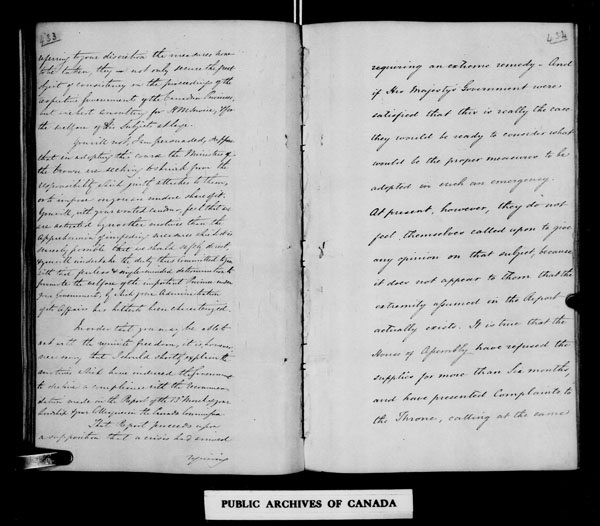 433
referring to your discretion the measures now
to be taken, they not only secure the great
object of consistency in the proceedings of the
respective governments of the Canadian Provinces,
but in effect
the welfare of the Subject at large.
You will not, I am persuaded, suppose
that in adopting this course the Ministers of
the Crown are seeking to shrink from the
responsibility which justly attaches to them,
or to impose on you an undue share of it.
You will, with your wonted candour, feel that we
are actuated by no other motives than the
apprehension of impeding measures which it is
scarcely possible that we should safely direct,
& you will undertake the duty thus committed to you
with that zealous & single-minded determination to
promote the welfare of the important Province under
your Government, by which your Administration
of its affairs has hitherto been characterized.
In order that you may be able to
act with the requisite freedom, it is however
necessary that I should shortly explain the
motives which have induced the Government
to decline a compliance with the recommen-
dation made in the Report of the 12 March of your
Lordship & your Colleagues in the Canada Commission.
That Report proceeds upon
a supposition that a crisis had arrived
requiring
434
requiring an extreme remedy – And
if His Majesty's Government were
satisfied that this is really the case
they would be ready to consider what
would be the proper measures to be
adopted in such an emergency.
At present, however, they do not
feel themselves called upon to give
any opinion on that subject, because
it does not appear to them that the
extremity assumed in the Report
actually exists. It is true that the
House of Assembly have refused the
supplies for more than Six months,
and have presented Complaints to
the Throne, calling at the same
PUBLIC ARCHIVES OF CANADA